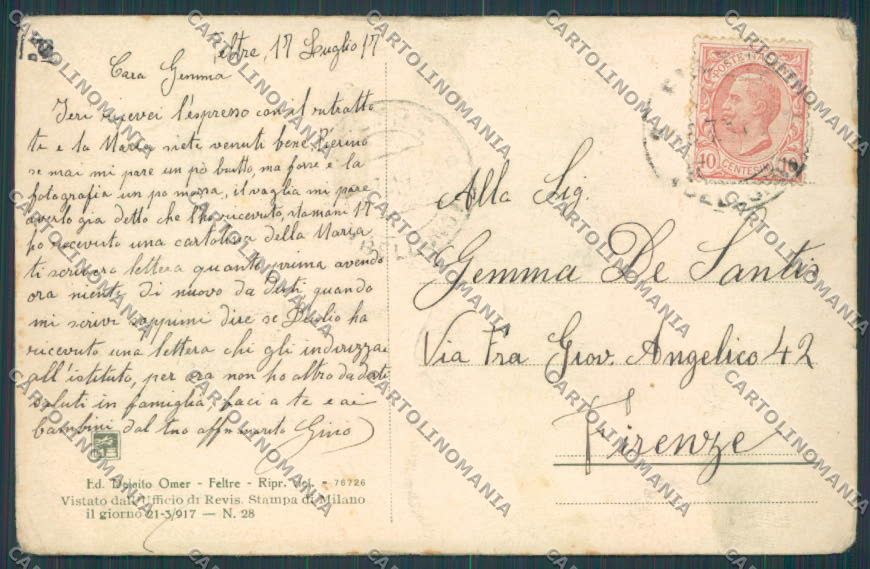 Feltre, 17 Luglio 17
Cara Gemma
Ieri ricevei l'espresso con il ritratto
te e la Maria siete venuti bene, Pierino
se mai mi pare un pò butto, ma forse è la
fotografia un po mossa, il vaglia mi pare
averlo gia detto che l'ho ricevuto, stamani 17
ho ricevuto una cartolina della Maria
ti scriverò lettera quanto prima avendo
ora niente di nuovo da dirti quando
mi scrivi sappimi dire se Duilio ha
ricevuto una lettera chi gli indirizzai
all'istituto, per ora non ho altro da dirti
saluti in famiglia, baci a te e ai
bambini dal tuo aff marito Gino
Ed. Omer - Feltre - Ripr. - 76726
Vistato dall'Ufficio di Revis. Stampa di Milano
il giorno 21-3/917 — N. 28
POSTE
10 CENTESIMI 10
Alla Sig.
Gemma De Santis
Via Fra Giov. Angelico 42
Firenze
CARTOLINOMANIA